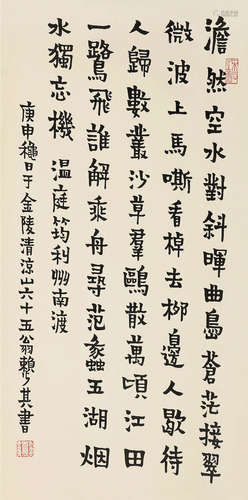 澹然空水對斜暉曲島蒼茫接翠
微波上馬嘶看棹去柳邊人歇待
人歸數叢沙草羣鷗散萬頃江田
一鷺飛誰解乘舟尋范蠡五湖烟
水獨忘機 溫庭筠利州南渡
庚申穐日于金陵清涼山六十五翁賴少其書